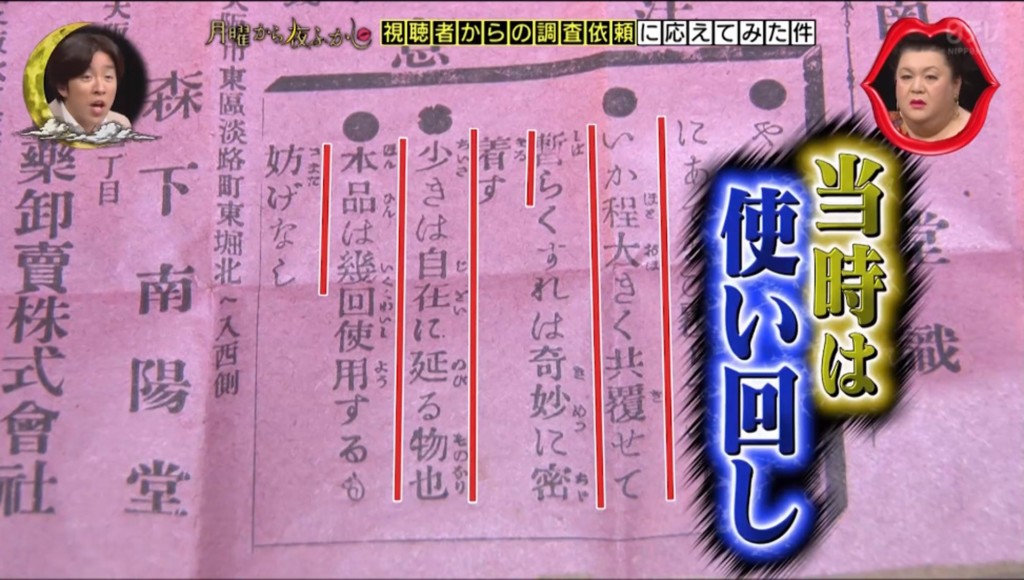 月曜から夜ふかし
視聴者からの調査依頼に応えてみた件
日テレ
当時は
使い回し
注
意
や
にあ
いか程大きく共覆せて
暫らくすれは奇妙に密
着す
少きは自在に延る物也
本品は幾回使用するも
妨げなし
用東區淡路町東堀北へ入西側
森下南陽堂
丁目
藥卸賣株式會社